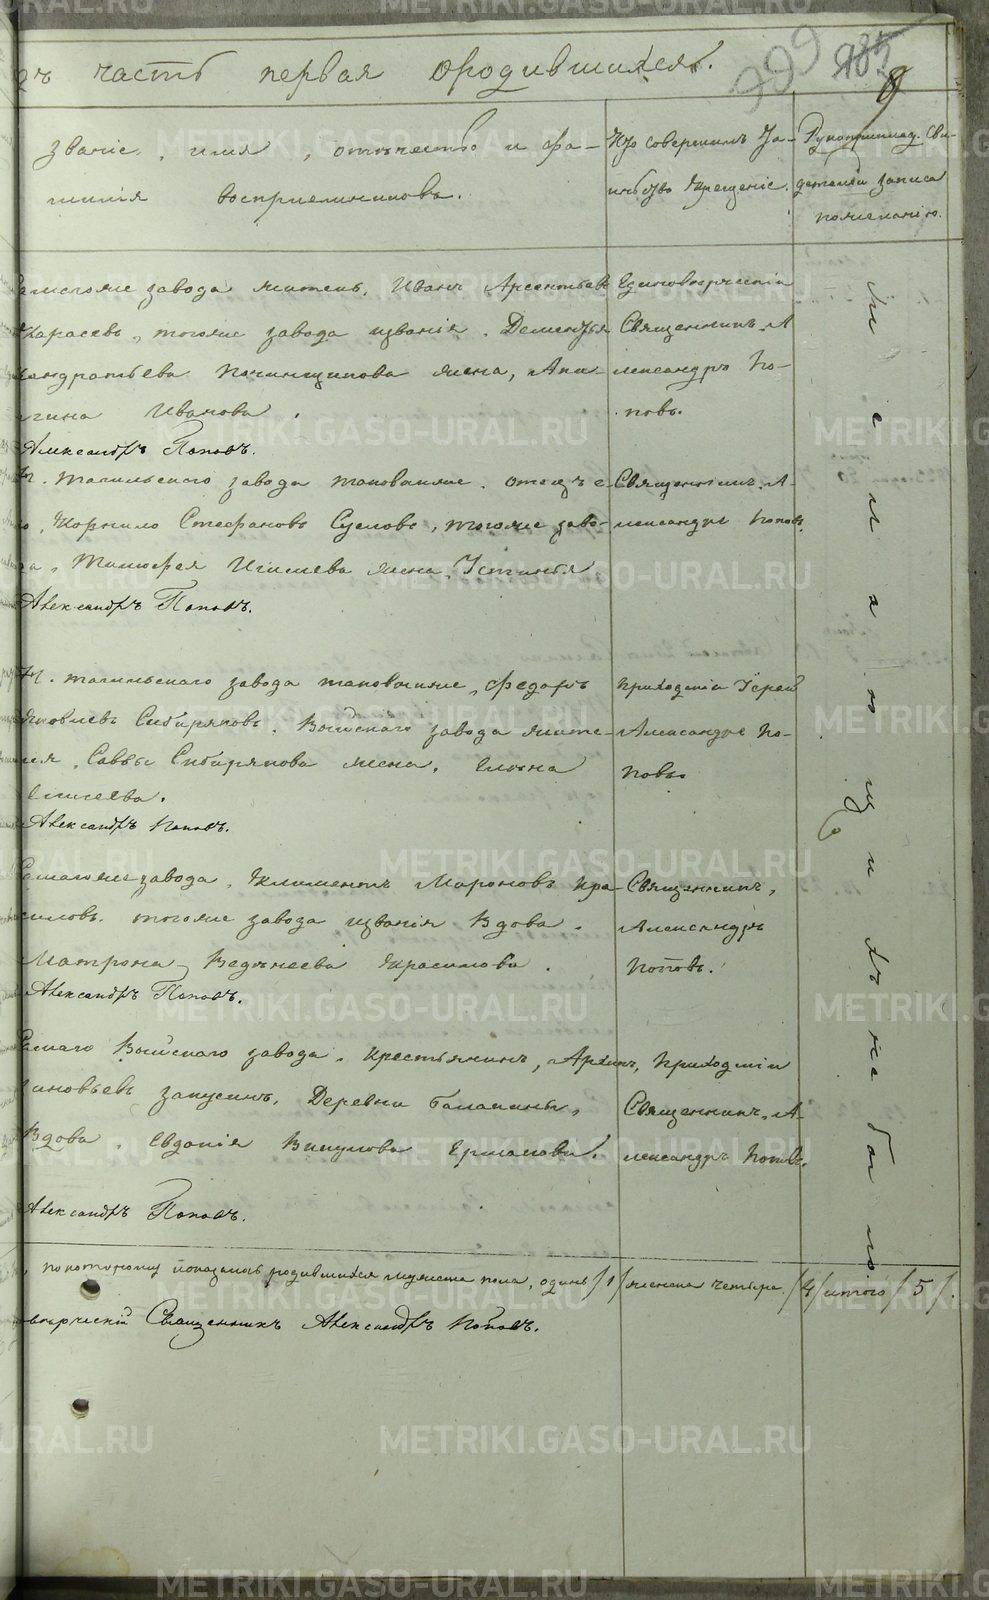 часть первая о родившихся.
999 985
8
званіе, имя, отчество и фа-
милія воспріемниковъ.
Кто совершилъ Та-
инство Крещеніе.
Рукоприклад. Сви-
детелей записи
по желанію.
завода житель, Иванъ Арсентьевъ
Карасевъ, тогоже завода изванія. Дементья
кондратьева Починщикова жена, Ани-
Иванова.
Александръ Поповъ.
Единоверческій
Священникъ А-
лександръ По-
повъ.
Н. тагильскаго завода
Корнило Стефановъ Сусловъ, тогоже заво-
да, Тимофея жена, Устинья
Александръ Поповъ.
Священникъ А-
лександръ Поповъ.
Н. тагильскаго завода Федоръ
Яковлевъ Сибиряковъ. Выйскаго завода жите-
ля, Саввы Сибирякова жена, Елена
Елисеева.
Александръ Поповъ.
Приходскій Іерей
Александръ По-
повъ.
завода, Климентъ Мароновъ Кра-
силовъ. тогоже завода изванія Вдова.
Матрона Веденеева Красилова.
Александръ Поповъ.
Священникъ,
Александръ
Поповъ.
Выйскаго завода. крестьянинъ, Архипъ
зиновьевъ запусинъ. Деревни балакины,
Вдова. Евдокія Викулова Ермакова.
Александръ Поповъ.
Приходскій
Священникъ А-
лександръ Поповъ.
желающихъ не было
по которому показаны родившихся мужеска пола, одинъ /1/ женска четыре /4/ итого /5/.
Священникъ Александръ Поповъ.
METRIKI.GASO-URAL.RU